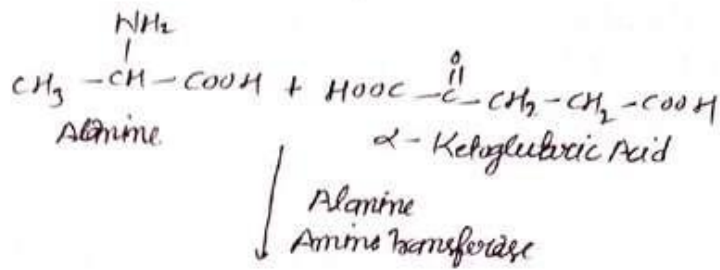 NH₂
|
CH₃ - CH - COOH + HOOC - C - CH₂ - CH₂ - COOH
O
||
Alanine
α - Ketoglutaric Acid
Alanine
Amino transferase